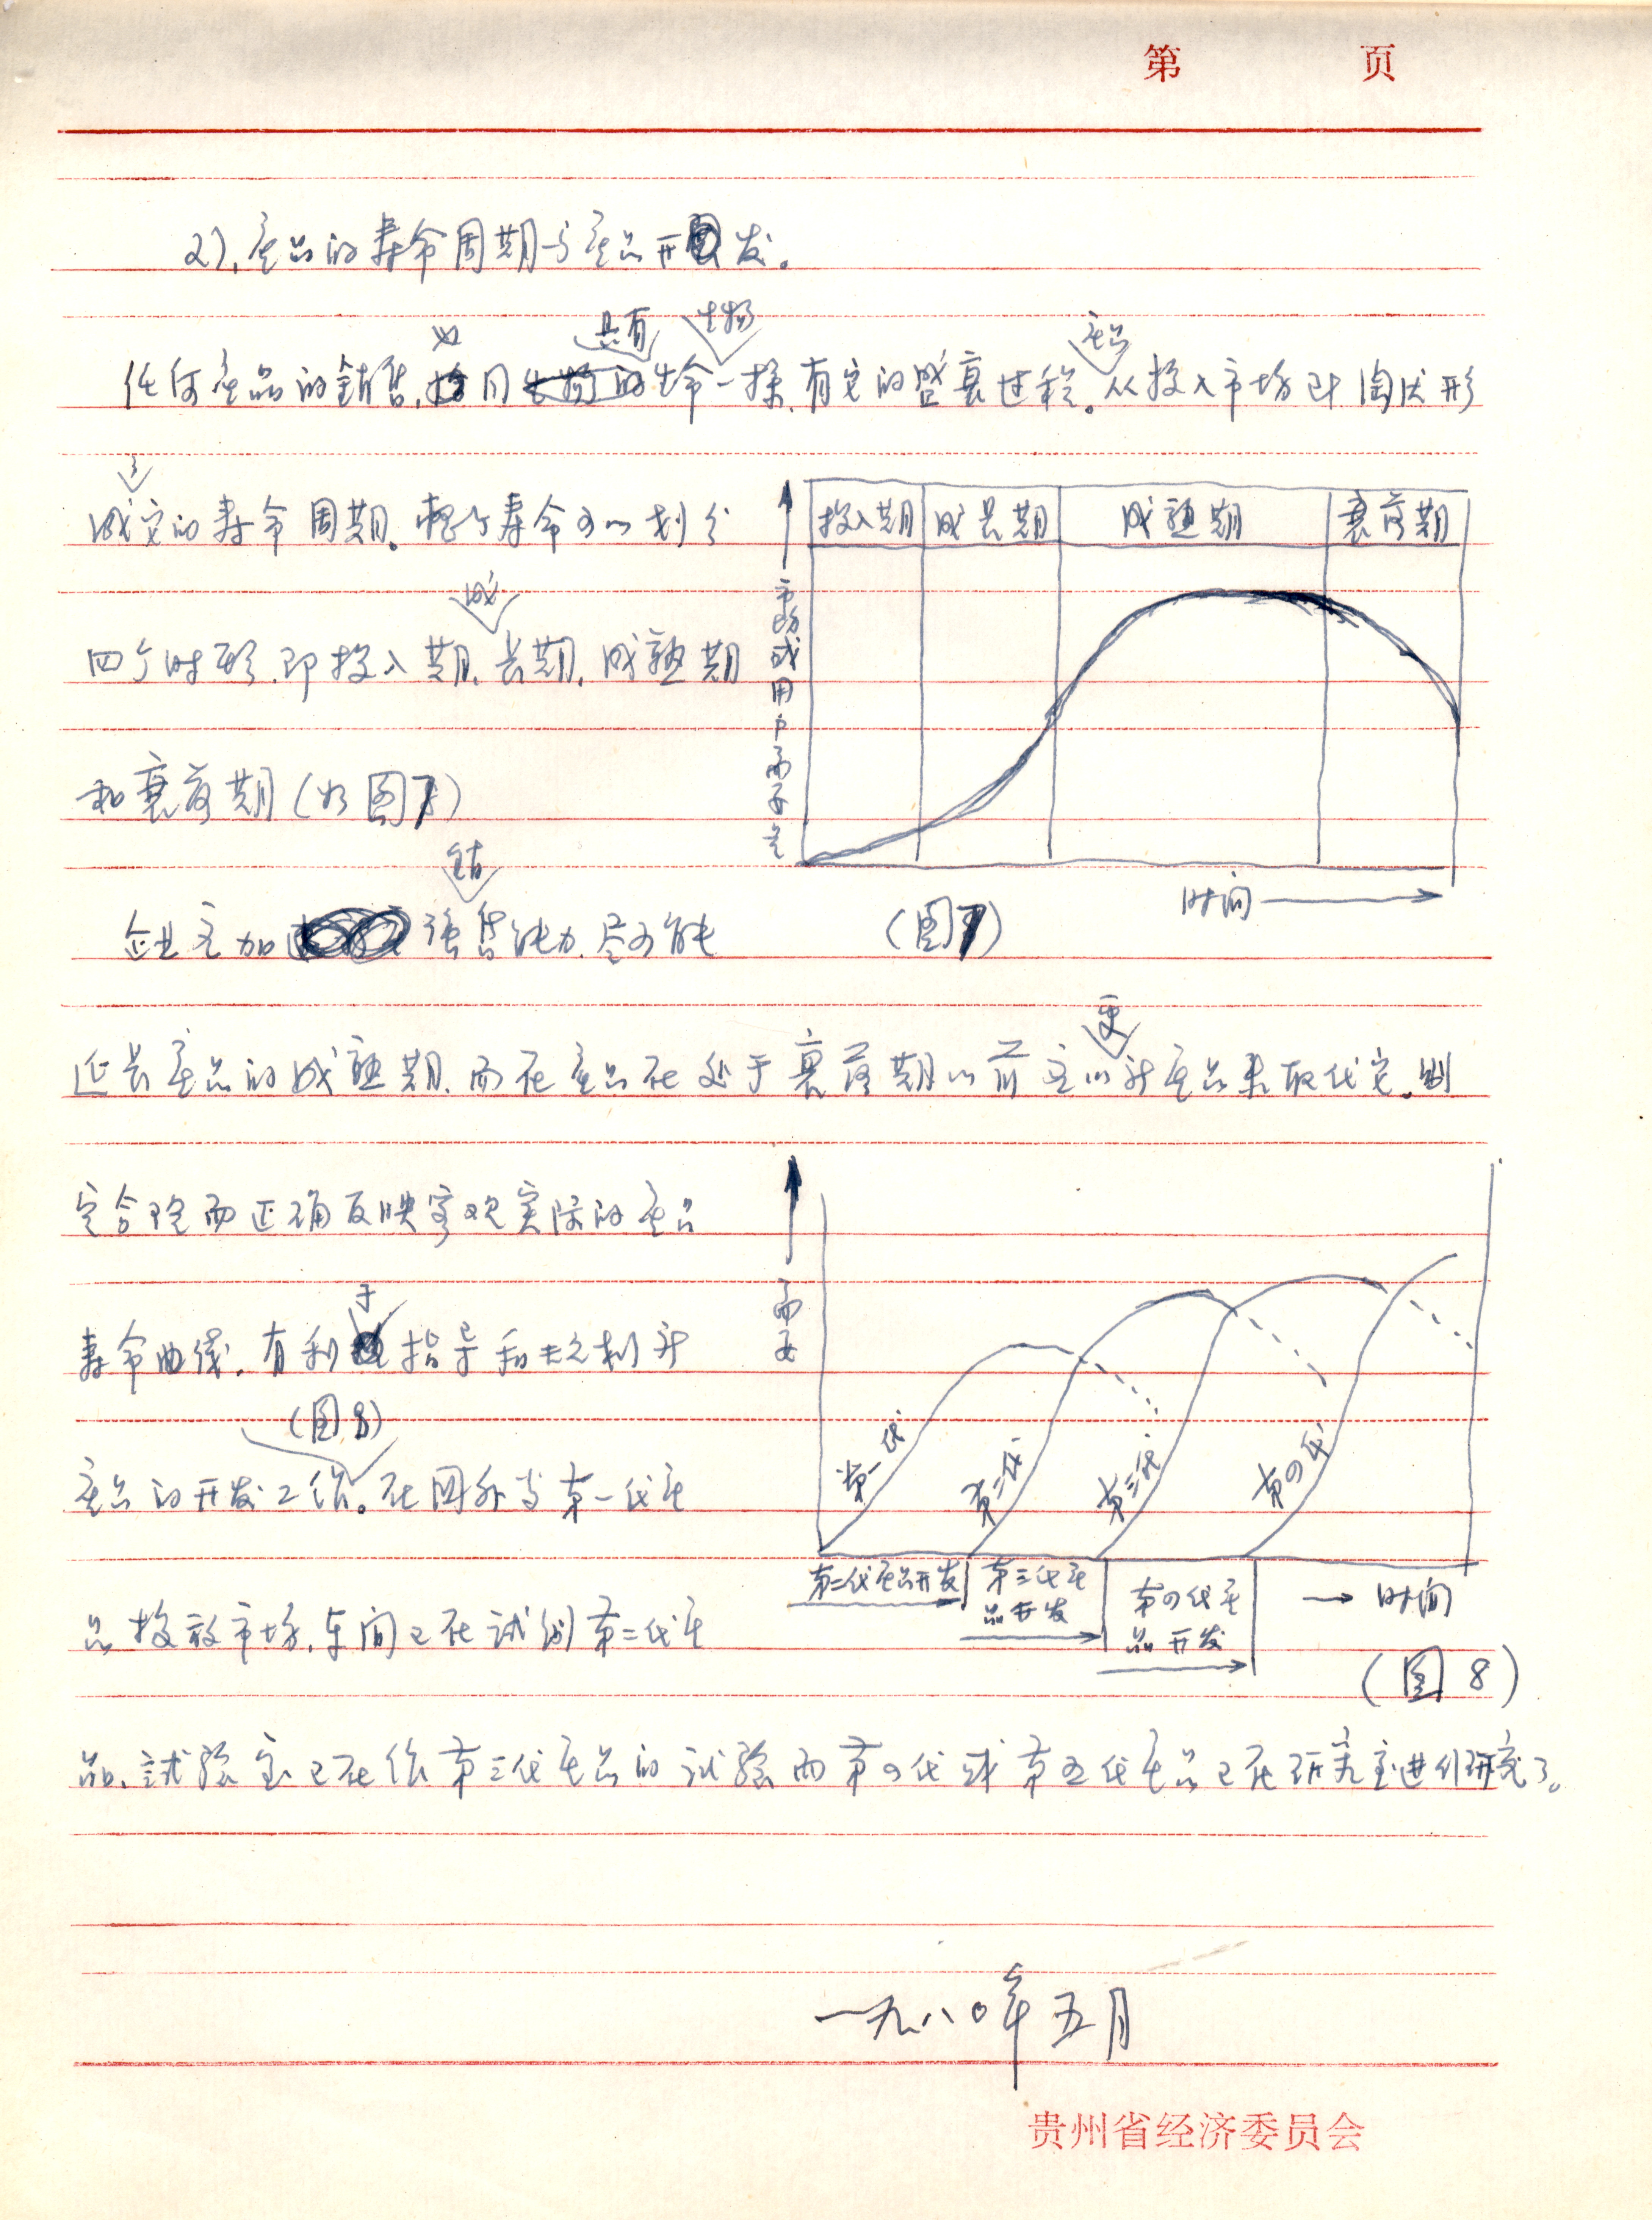 第 页
2)、产品的寿命周期与产品开发。
如 具有 生物 产品
任何产品的销售,同生命一样,有它的盛衰过程。从投入市场到淘汰形
了
成它的寿命周期。整个寿命可以划分
成
四个时形,即投入期、长期、成熟期
和衰落期(如图7)
销
企业应加强售能力,尽可能
投入期 成长期 成熟期 衰落期
市场或用户需要
时间
(图7)
更
延长产品的成熟期,而在产品在处于衰落期以前应以新产品来取代它。制
定合理而正确反映客观实际的产品
于
寿命曲线,有利指导和规划新
(图8)
产品的开发工作。在国外当第一代产
品投放市场,车间已在试制第二代产
需要
第一代 第二代 第三代 第四代
第二代产品开发 第三代产品开发 第四代产品开发 时间
(图8)
品,试验室已在作第三代产品的试验而第四代或第五代产品已在研究室进行研究了。
一九八〇年五月
贵州省经济委员会